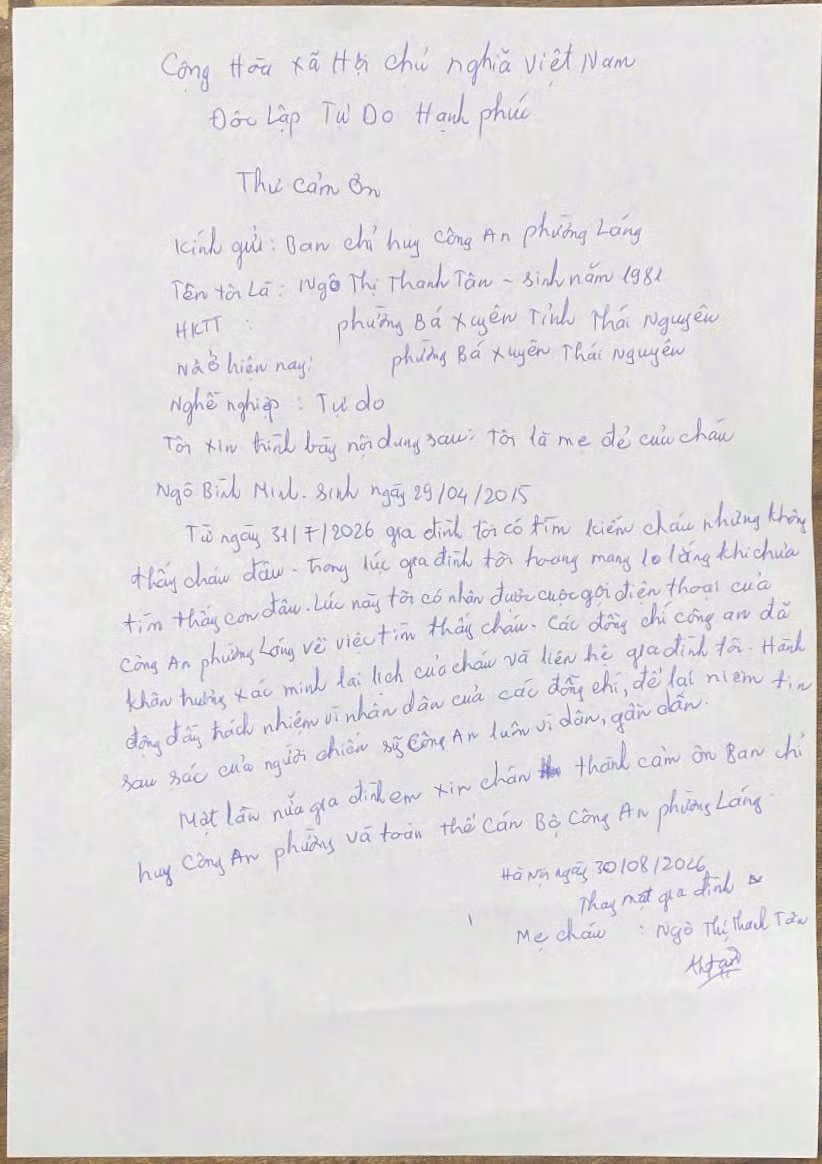 Cộng Hòa xã Hội chủ nghĩa Việt Nam
Độc Lập Tự Do Hạnh phúc
Thư cảm ơn
Kính gửi: Ban chỉ huy Công An phường Láng
Tên tôi Là: Ngô Thị Thanh Tân - sinh năm 1981
HKTT : phường Bá Xuyên Tỉnh Thái Nguyên
Nơi ở hiện nay: phường Bá Xuyên Thái Nguyên
Nghề nghiệp : Tự do
Tôi xin trình bày nội dung sau: Tôi là mẹ đẻ của cháu
Ngô Bình Minh. sinh ngày 29/04/2015
Từ ngày 31/7/2026 gia đình tôi có tìm kiếm cháu nhưng không
thấy cháu đâu. Trong lúc gia đình tôi hoang mang lo lắng khi chưa
tìm thấy con đâu. Lúc này tôi có nhận được cuộc gọi điện thoại của
Công An phường Láng về việc tìm thấy cháu. Các đồng chí công an đã
khẩn trương xác minh lai lịch của cháu và liên hệ gia đình tôi. Hành
động đầy trách nhiệm vì nhân dân của các đồng chí, để lại niềm tin
sau sắc của người chiến sỹ Công An luôn vì dân, gần dân.
Một lần nữa gia đình em xin chân thành cảm ơn Ban chỉ
huy Công An phường và toàn thể Cán Bộ Công An phường Láng.
Hà Nội ngày 30/08/2026
Thay mặt gia đình
Mẹ cháu : Ngô Thị Thanh Tân